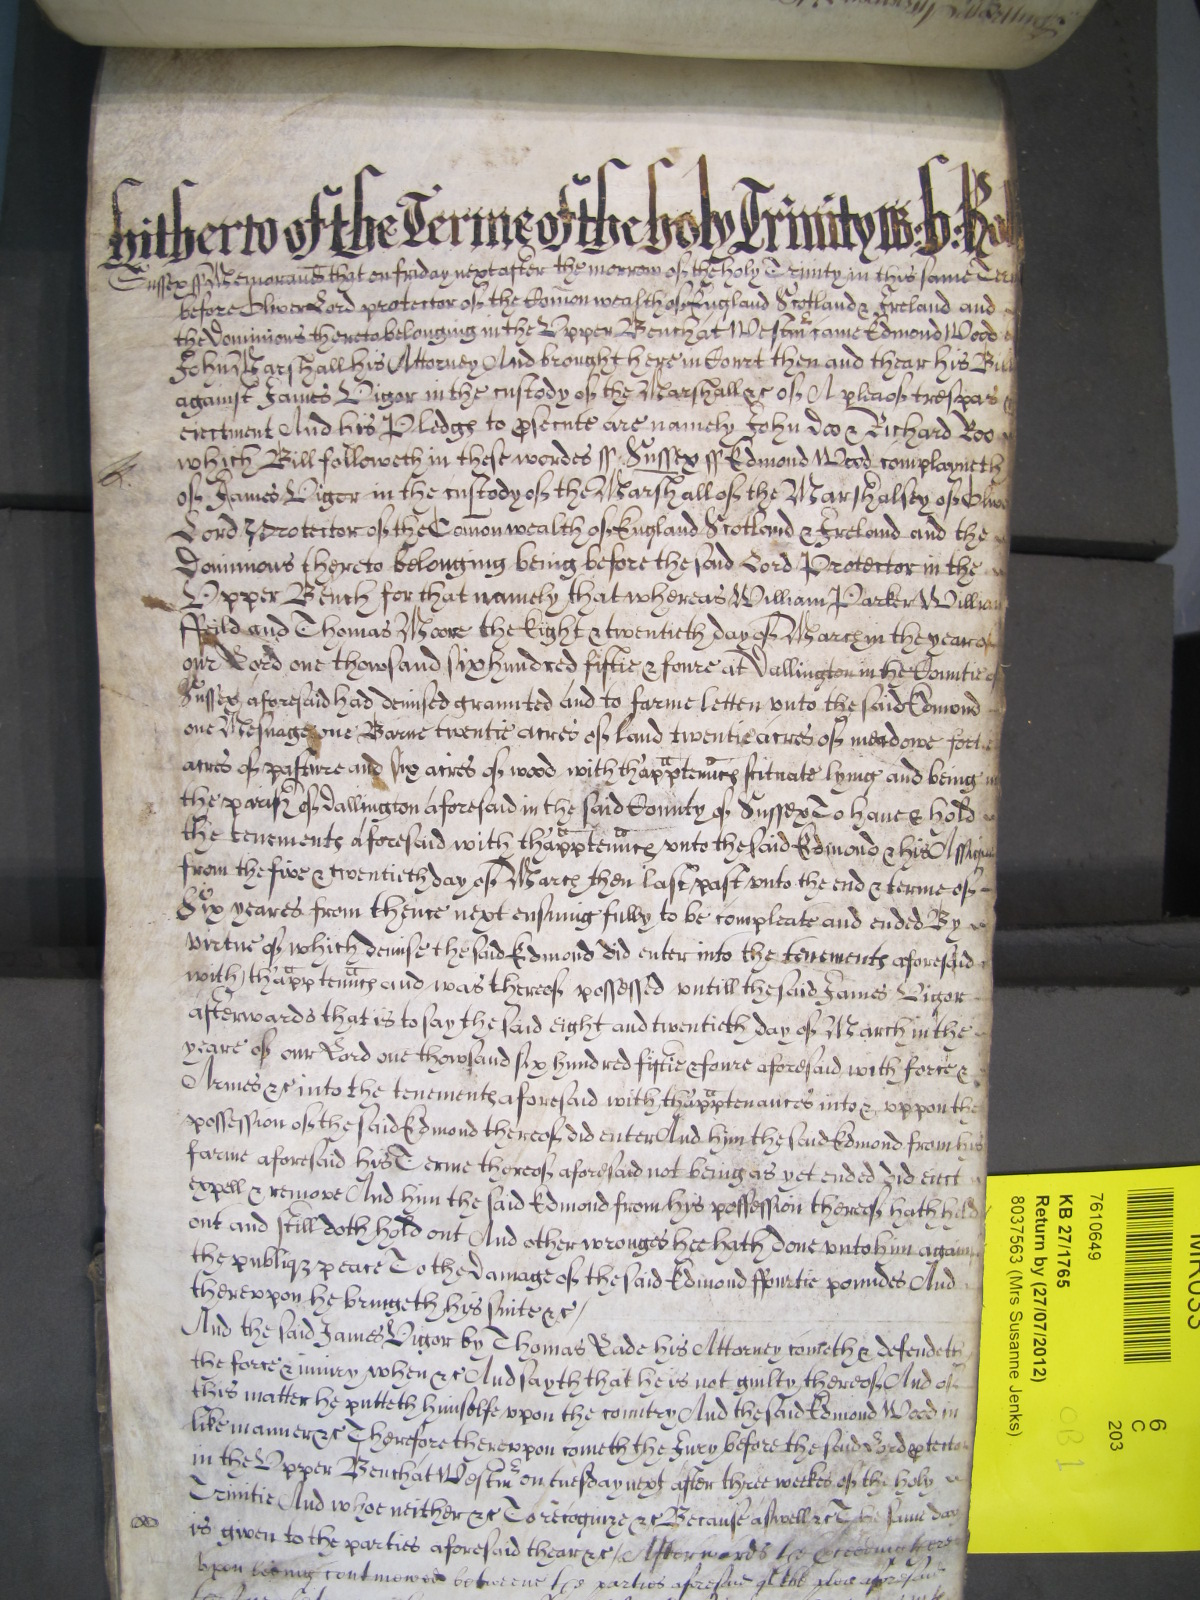 hitherto of the Terme of the holy Trinity
Sussex ss Memorand that on friday next after the morrow of the holy Trinity in this same Ter
before Oliver Lord protector of the Comon wealth of England Scotland & Ireland and
the Dominions thereto belonging in the Upper Bench at Westmr came Edmond Wood
John Marshall his Attorney And brought here in Court then and thear his Bill
against James Vigor in the custody of the Marshall &c of A plea of trespas
eiectment And his Pledge to psecute are namely John Doo & Richard Roo
which Bill followeth in these wordes ss Sussex ss Edmond Wood complayneth
of James Vigor in the custody of the Marshall of the Marshalsey of Olive
Lord Protector of the Comon wealth of England Scotland & Ireland and the
Dominions thereto belonging being before the said Lord Protector in the
Upper Bench for that namely that whereas William Parker William
ffeild and Thomas Moore the Eight & twentieth day of March in the yeare of
our Lord one thowsand six hundred fiftie & foure at Dallington in the Countie of
Sussex aforesaid had demised graunted and to farme letten unto the said Edmond
one Mesuage one Barne twentie acres of land twentie acres of meadowe fortie
acres of pasture and six acres of wood with thapptenncs scituate lying and being in
the parish of Dallington aforesaid in the said County of Sussex To have & hold
the tenements aforesaid with thapptenncs unto the said Edmond & his Assignes
from the five & twentieth day of March then last past unto the end & terme of
Six yeares from thence next ensuing fully to be compleate and ended By
virtue of which demise the said Edmond did enter into the tenements aforesaid
with thapptenncs and was thereof possessed untill the said James Vigor
afterwards that is to say the said eight and twentieth day of March in the
yeare of our Lord one thowsand six hundred fiftie & foure aforesaid with force &
Armes &c into the tenements aforesaid with thapptenances into & uppon the
possession of the said Edmond thereof did enter And him the said Edmond from his
farme aforesaid his Terme thereof aforesaid not being as yet ended did eiect
expell & remove And him the said Edmond from his possession thereof hath held
out and still doth hold out And other wronges hee hath done unto him against
the publiq peace To the Damage of the said Edmond ffourtie poundes And
thereuppon he bringeth his suite &c /
And the said James Vigor by Thomas Rade his Attorney cometh & defendeth
the force & iniury when &c And sayth that he is not guilty thereof And of
this matter he putteth himselfe upon the country And the said Edmond Wood in
like manner &c Therefore thereuppon cometh the Jury before the said Lord ptector
in the Upper Bench at Westmr on tuesday next after three weekes of the holy
Trinitie And whoe neither &c To recognize &c Because aswell &c The same day
is given to the parties aforesaid thear &c / Afterwards the
upon being continewed betweene the parties aforesaid of the plea aforesaid
7610649
KB 27/1765
Return by (27/07/2012)
8037563 (Mrs Susanne Jenks)
6
C
203
MR033